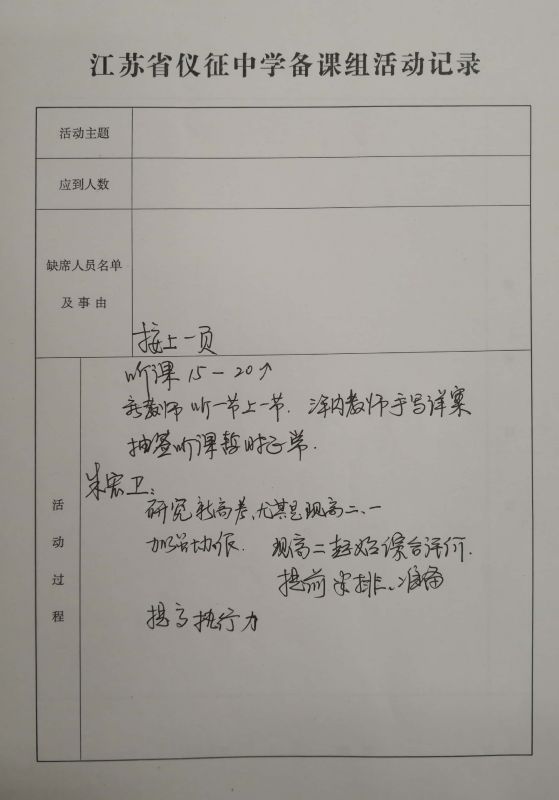 江苏省仪征中学备课组活动记录
活动主题
应到人数
缺席人员名单
及事由
接上一页
活动过程
听课15-20个
新教师 听一节上一节. 组内教师手写详案
抽签听课暂时正常.
朱宏卫:
研究新高考、尤其是现高二、一
加强协作. 现高二 综合评价.
提前安排、准备
提高执行力